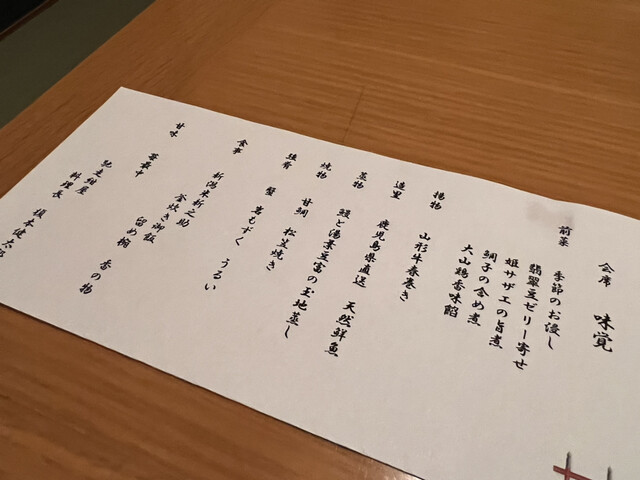 会席 味覚
前菜 季節のお浸し
翡翠豆ゼリー寄せ
姫サザエの旨煮
鯛子の含め煮
大山鶏香味餡
揚物 山形牛春巻き
造里 鹿児島県直送 天然鮮魚
蒸物 鰻と湯葉豆富の玉地蒸し
焼物 甘鯛 松笠焼き
強肴 蟹 岩もずく うるい
食事 新潟米新之助
釜炊き御飯
留め椀 香の物
甘味 苺最中
馳走紺屋
料理長 榎本健太郎